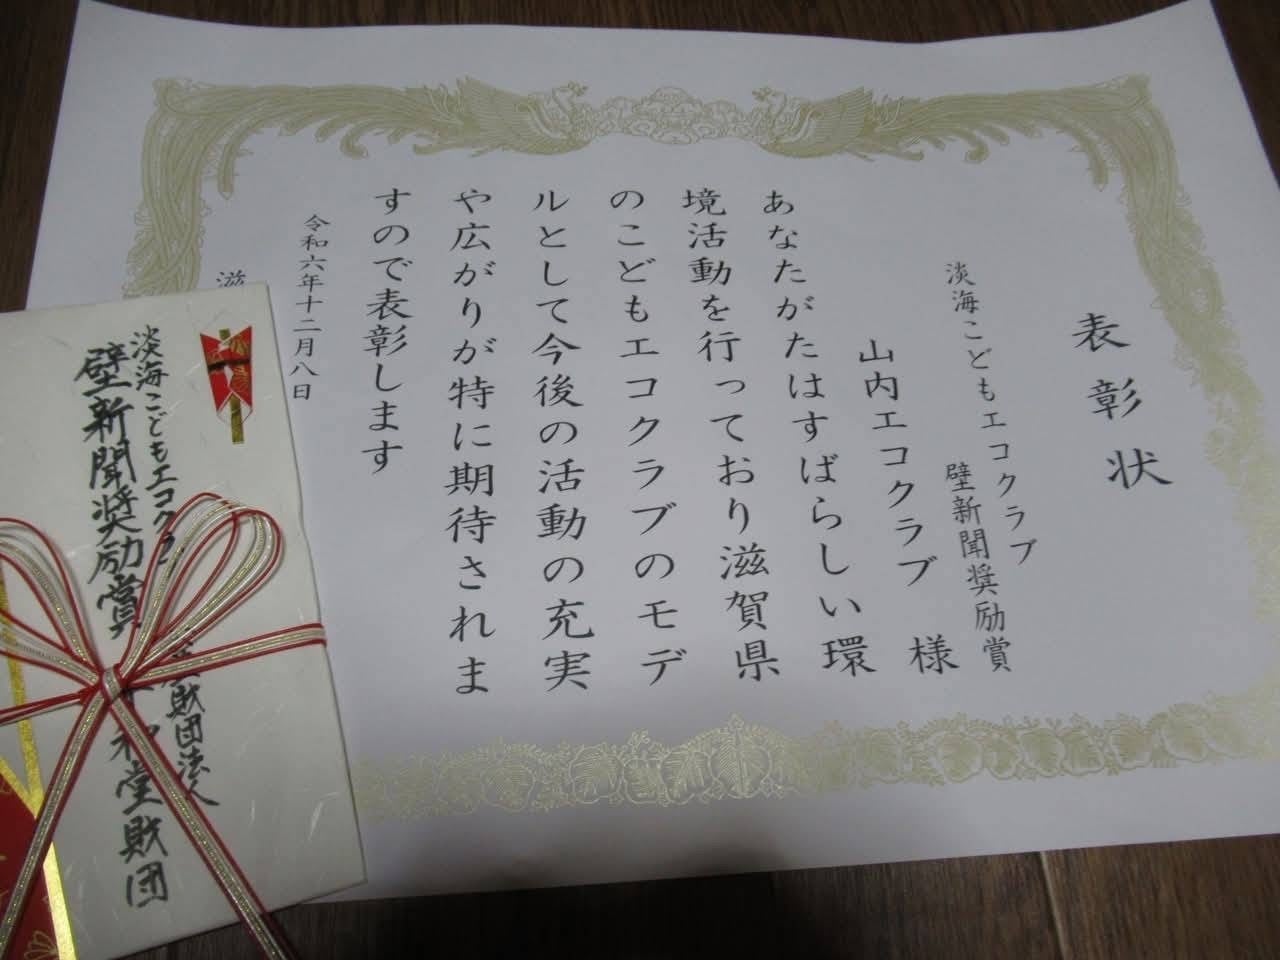 表彰状
淡海こどもエコクラブ
壁新聞奨励賞
山内エコクラブ 様
あなたがたはすばらしい環
境活動を行っており滋賀県
のこどもエコクラブのモデ
ルとして今後の活動の充実
や広がりが特に期待されま
すので表彰します
令和六年十二月八日
滋
淡海こどもエコクラブ
壁新聞奨励賞
財団法人
和堂財団